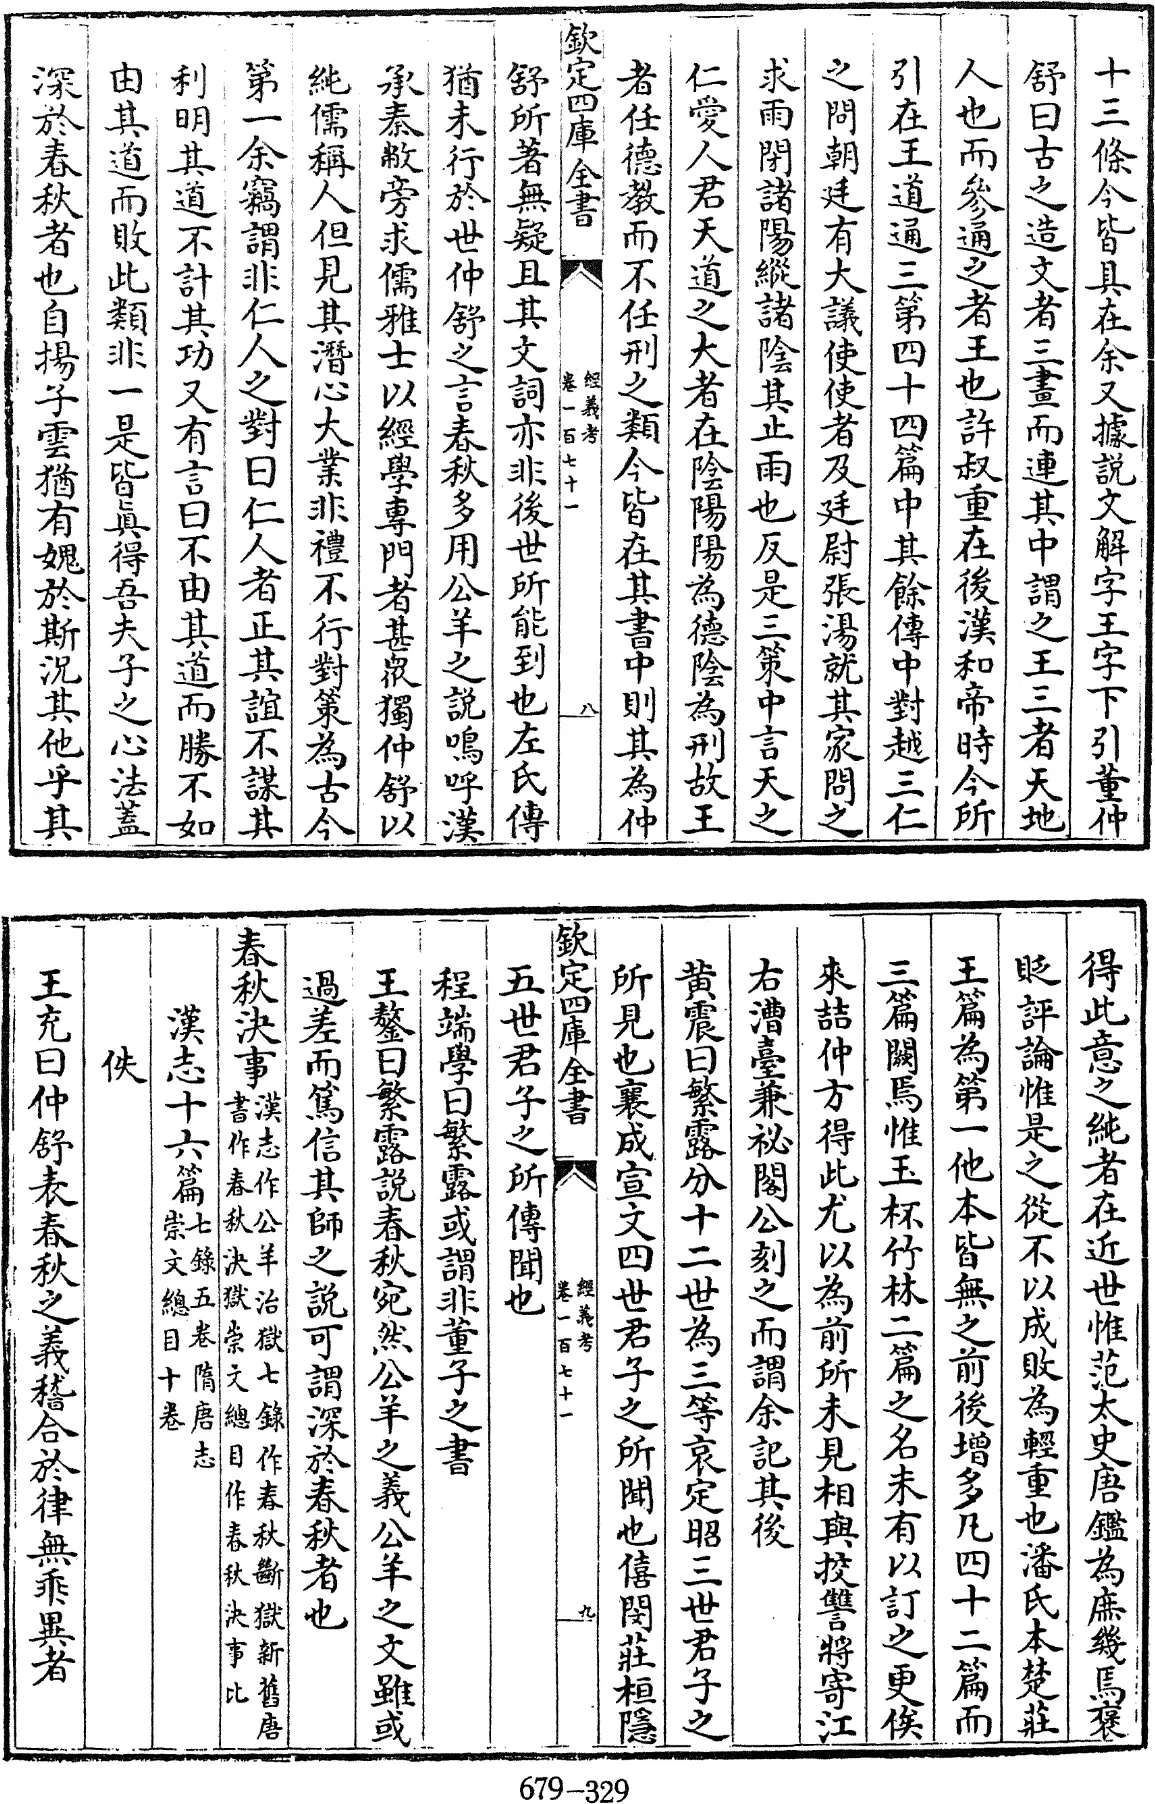 十三條今皆具在余又據説文解字王字下引董仲
舒曰古之造文者三畫而連其中謂之王三者天地
人也而參通之者王也許叔重在後漢和帝時今所
引在王道通三第四十四篇中其餘傳中對越三仁
之問朝廷有大議使使者及廷尉張湯就其家問之
求雨閉諸陽縱諸陰其止雨也反是三策中言天之
仁愛人君天道之大者在陰陽陽為德陰為刑故王
者任德教而不任刑之類今皆在其書中則其為仲
欽定四庫全書
經義考
卷一百七十一
八
舒所著無疑且其文詞亦非後世所能到也左氏傳
猶未行於世仲舒之言春秋多用公羊之説嗚呼漢
承秦敝旁求儒雅士以經學專門者甚衆獨仲舒以
純儒稱人但見其潛心大業非禮不行對策為古今
第一余竊謂非仁人之對曰仁人者正其誼不謀其
利明其道不計其功又有言曰不由其道而勝不如
由其道而敗此類非一是皆真得吾夫子之心法蓋
深於春秋者也自揚子雲猶有媿於斯況其他乎其
得此意之純者在近世惟范太史唐鑑為庶幾焉襃
貶評論惟是之從不以成敗為輕重也潘氏本楚莊
王篇為第一他本皆無之前後增多凡四十二篇而
三篇闕焉惟玉杯竹林二篇之名未有以訂之更俟
來喆仲方得此尤以為前所未見相與挍讐將寄江
右漕臺兼祕閣公刻之而謂余記其後
黄震曰繁露分十二世為三等哀定昭三世君子之
所見也襄成宣文四世君子之所聞也僖閔莊桓隱
欽定四庫全書
經義考
卷一百七十一
九
五世君子之所傳聞也
程端學曰繁露或謂非董子之書
王鏊曰繁露説春秋宛然公羊之義公羊之文雖或
過差而篤信其師之説可謂深於春秋者也
春秋決事漢志作公羊治獄七錄作春秋斷獄新舊唐
書作春秋決獄崇文總目作春秋決事比
漢志十六篇七錄五卷隋唐志
崇文總目十卷
佚
王充曰仲舒表春秋之義稽合於律無乖異者
679-329